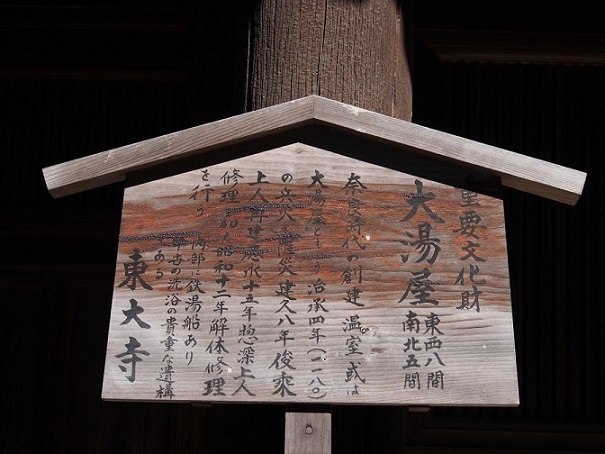 重要文化財
大湯屋 東西八間
南北五間
奈良時代の創建 温室或は
大湯屋ともいう 治承四年(一一八〇)
の兵火で罹災 建久八年俊乗
上人再建 応永十五年惣深上人
修理 昭和十二年解体修理
を行う 内部に鉄湯船あり
中世の洗浴の貴重な遺構
である
東大寺